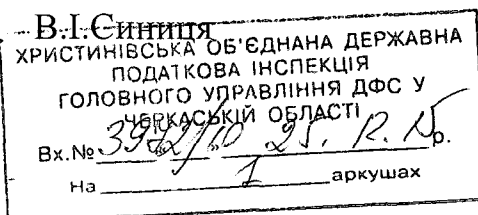 В.І.Синиця
ХРИСТИНІВСЬКА ОБ'ЄДНАНА ДЕРЖАВНА
ПОДАТКОВА ІНСПЕКЦІЯ
ГОЛОВНОГО УПРАВЛІННЯ ДФС У
ЧЕРКАСЬКІЙ ОБЛАСТІ
Вх.№ 3942/10 25. 12. 15 р.
На 1 аркушах